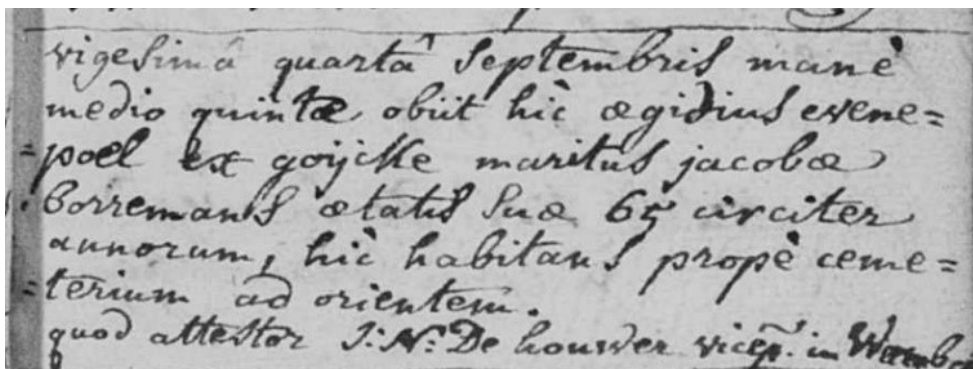 vigesimâ quartâ septembris manè
medio quintæ obiit hìc ægidius evene=
=poel ex goijcke maritus jacobæ
borremans ætatis suæ 65 circiter
annorum, hìc habitans propè ceme=
=terium ad orientem.
quod attestor J: N: De houwer vicep. in Wamb